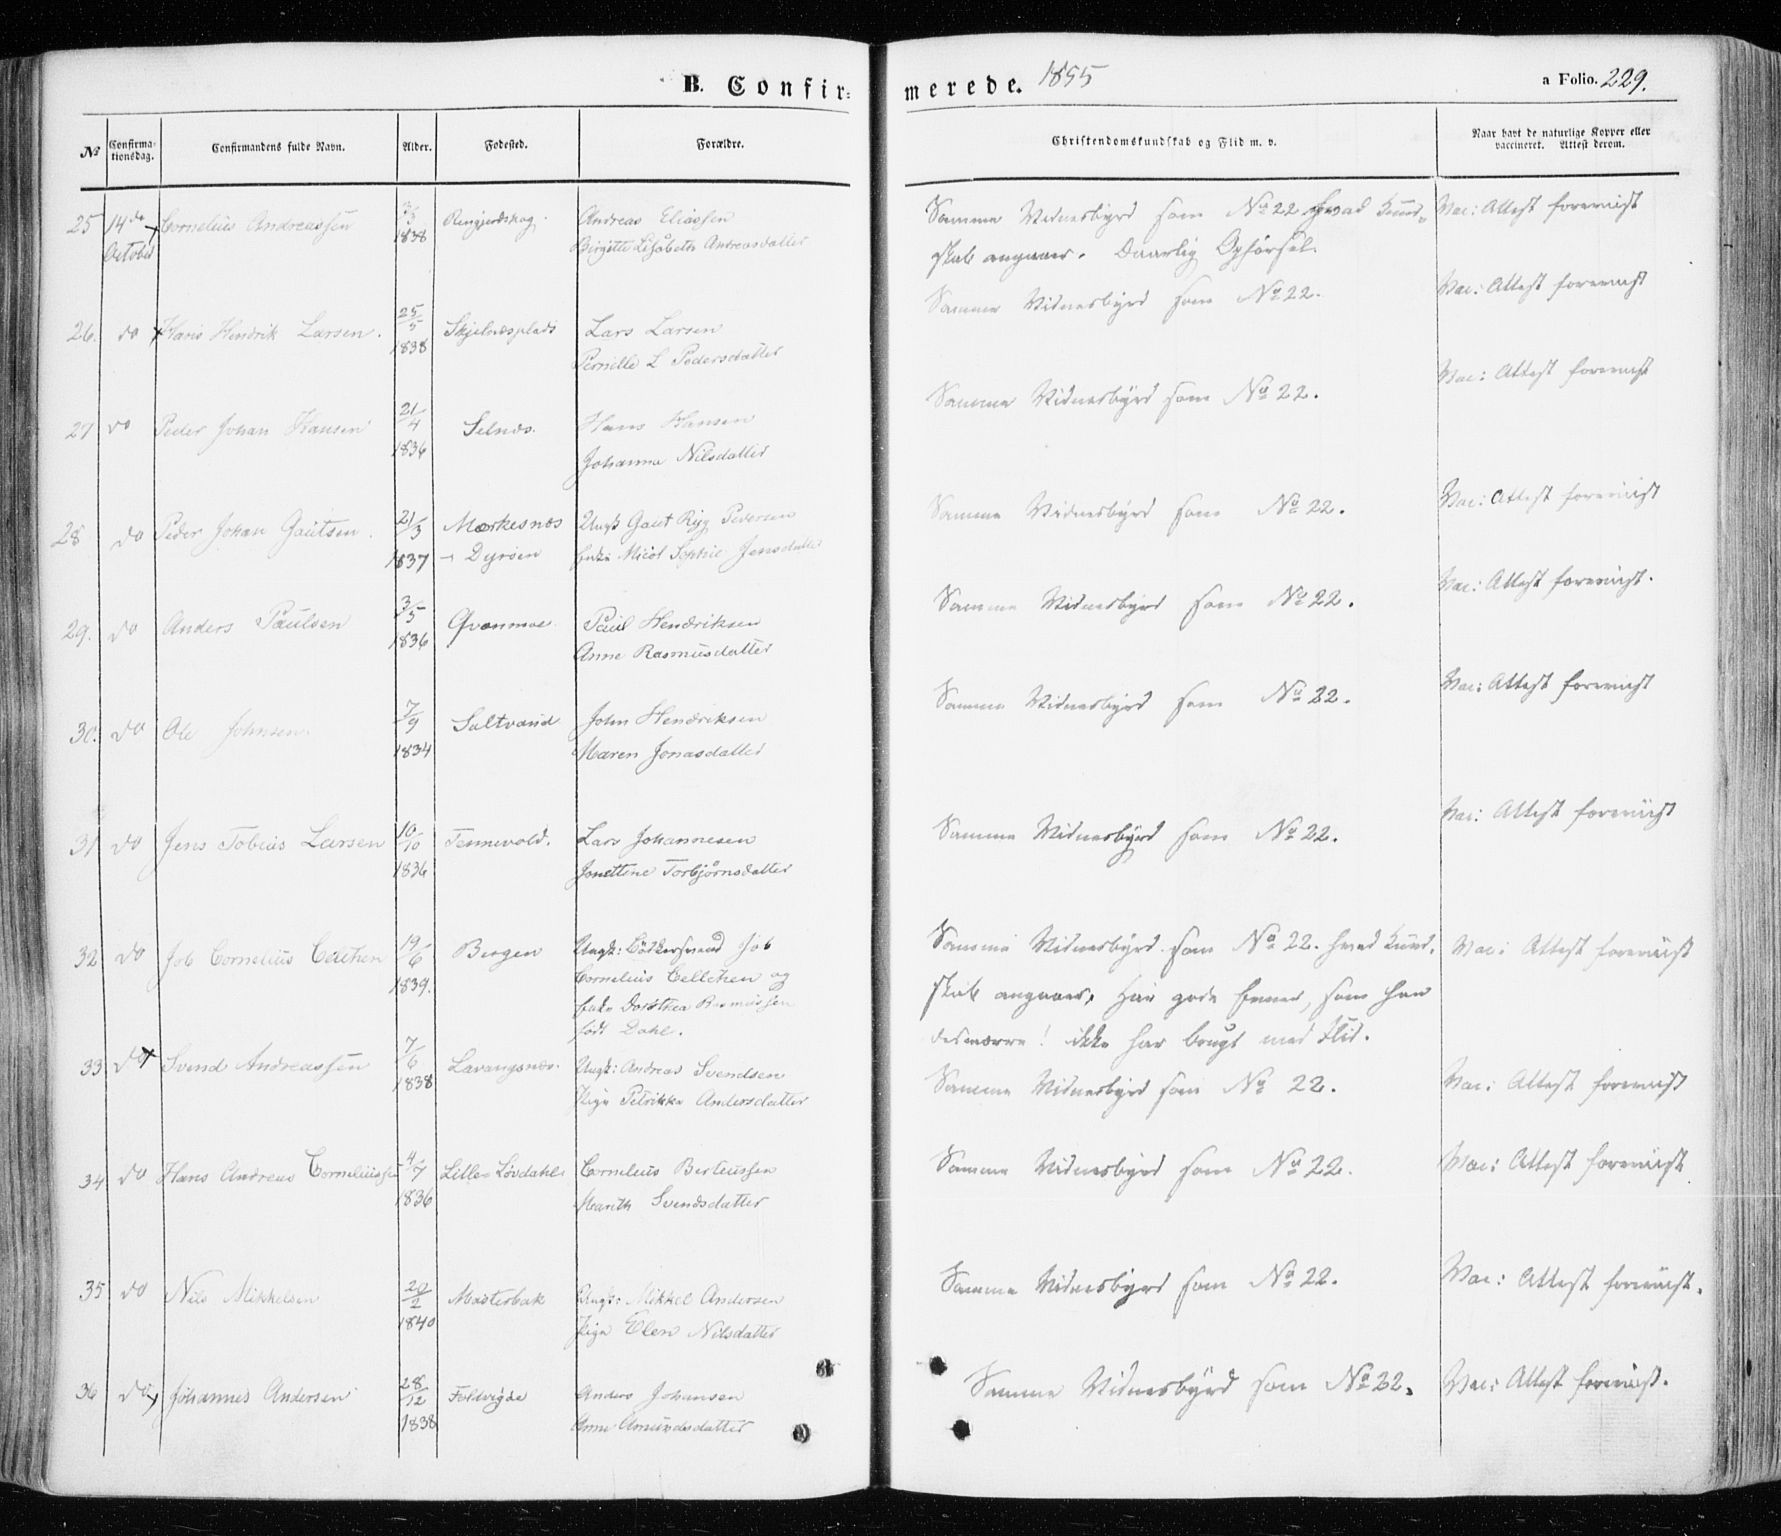 B. Confirmerede. 1855
a Folio. 229.
No Confirmationsdag. Confirmandens fulde Navn. Alder. Fødested. Forældre. Christendomskundskab og Flid m. v. Naar havt de naturlige Kopper eller vaccineret. Attest derom.
25 14de October Cornelius Andreassen 1838 Andreas Eliassen Samme Vidnesbyrd som No 22 hvad Kund- Vac: Attest foreviist
Birgitte Lisabeth Andreasdatter skab angaaer. Daarlig Opførsel.
26. do Hans Hendrik Larsen. 25/5 1838 Skjelnæsplads Lars Larsen Samme Vidnesbyrd som No 22. Vac: Attest foreviist
Pernille L Pedersdatter
27 do Peder Johan Hansen 21/4 1836 Selnæs. Hans Hansen Samme Vidnesbyrd som No 22. Vac: Attest foreviist
Johanna Nilsdatter
28 do Peder Johan Gautsen. 21/3 1837 Mærkesnæs Ungk Gaut Ryg Pedersen Samme Vidnesbyrd som No 22. Vac: Attest foreviist
- Dyrøen Enke Micol Sophie Jensdatter
29. do Anders Paulsen 3/5 1836 Qvanmoe Paul Hendriksen Samme Vidnesbyrd som No 22. Vac: Attest foreviist.
Anne Rasmusdatter
30. do Ole Johnsen. 7/9 1834 Saltvand John Hendriksen Samme Vidnesbyrd som No 22. Vac: Attest foreviist
Maren Jonasdatter
31 do Jens Tobias Larsen 10/10 1836 Tennevold. Lars Johannesen Samme Vidnesbyrd som No 22. Vac: Attest foreviist
Jonettine Torbjørnsdatter
32 do Job Cornelius 19/6 1839. Bergen Ungk: Bødkersvend Job Samme Vidnesbyrd som No 22. hvad Kund- Vac: Attest foreviist
Cornelius og skab angaaer. Har gode Evner, som han
Enke Dorothea Rasmussen desværre! ikke har brugt med Flid.
født Dahl.
33 do Svend Andreassen 7/6 1838 Lavangsnæs. Ungk: Andreas Svendsen Samme Vidnesbyrd som No 22. Vac: Attest foreviist
Pige Petrikke Andersdatter
34 do Hans Andreas Corneliussen 4/7 1836 Lille Løvdahl Cornelius Berteussen Samme Vidnesbyrd som No 22. Vac: Attest foreviist
Marith Svendsdatter
35 do Nils Mikkelsen 1840 Mæsterbak Ungk: Mikkel Andersen Samme Vidnesbyrd som No 22. Vac: Attest foreviist.
Pige Elen Nilsdatter
36 do Johannes Andersen 28/12 1838 Foldvigøe Anders Johansen Samme Vidnesbyrd som No 22. Vac: Attest foreviist.
Anne Amundsdatter